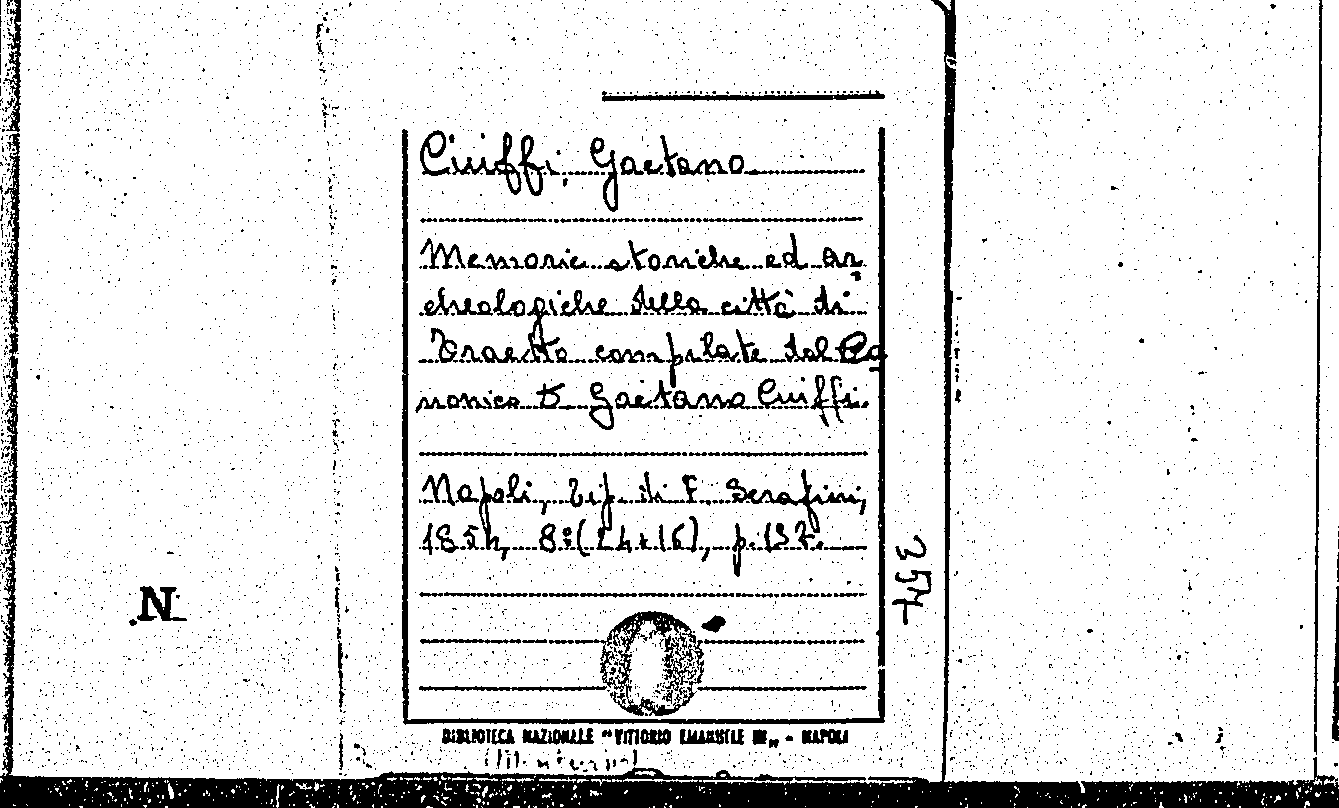 Ciuffi, Gaetano
Memorie storiche ed ar
cheologiche della città di
Traetto compilate dal Ca
nonico D. Gaetano Ciuffi.
Napoli, Tip. di F. Serafini,
1854, 8° (24×16), p. 197.
357
N
BIBLIOTECA NAZIONALE "VITTORIO EMANUELE III„ - NAPOLI